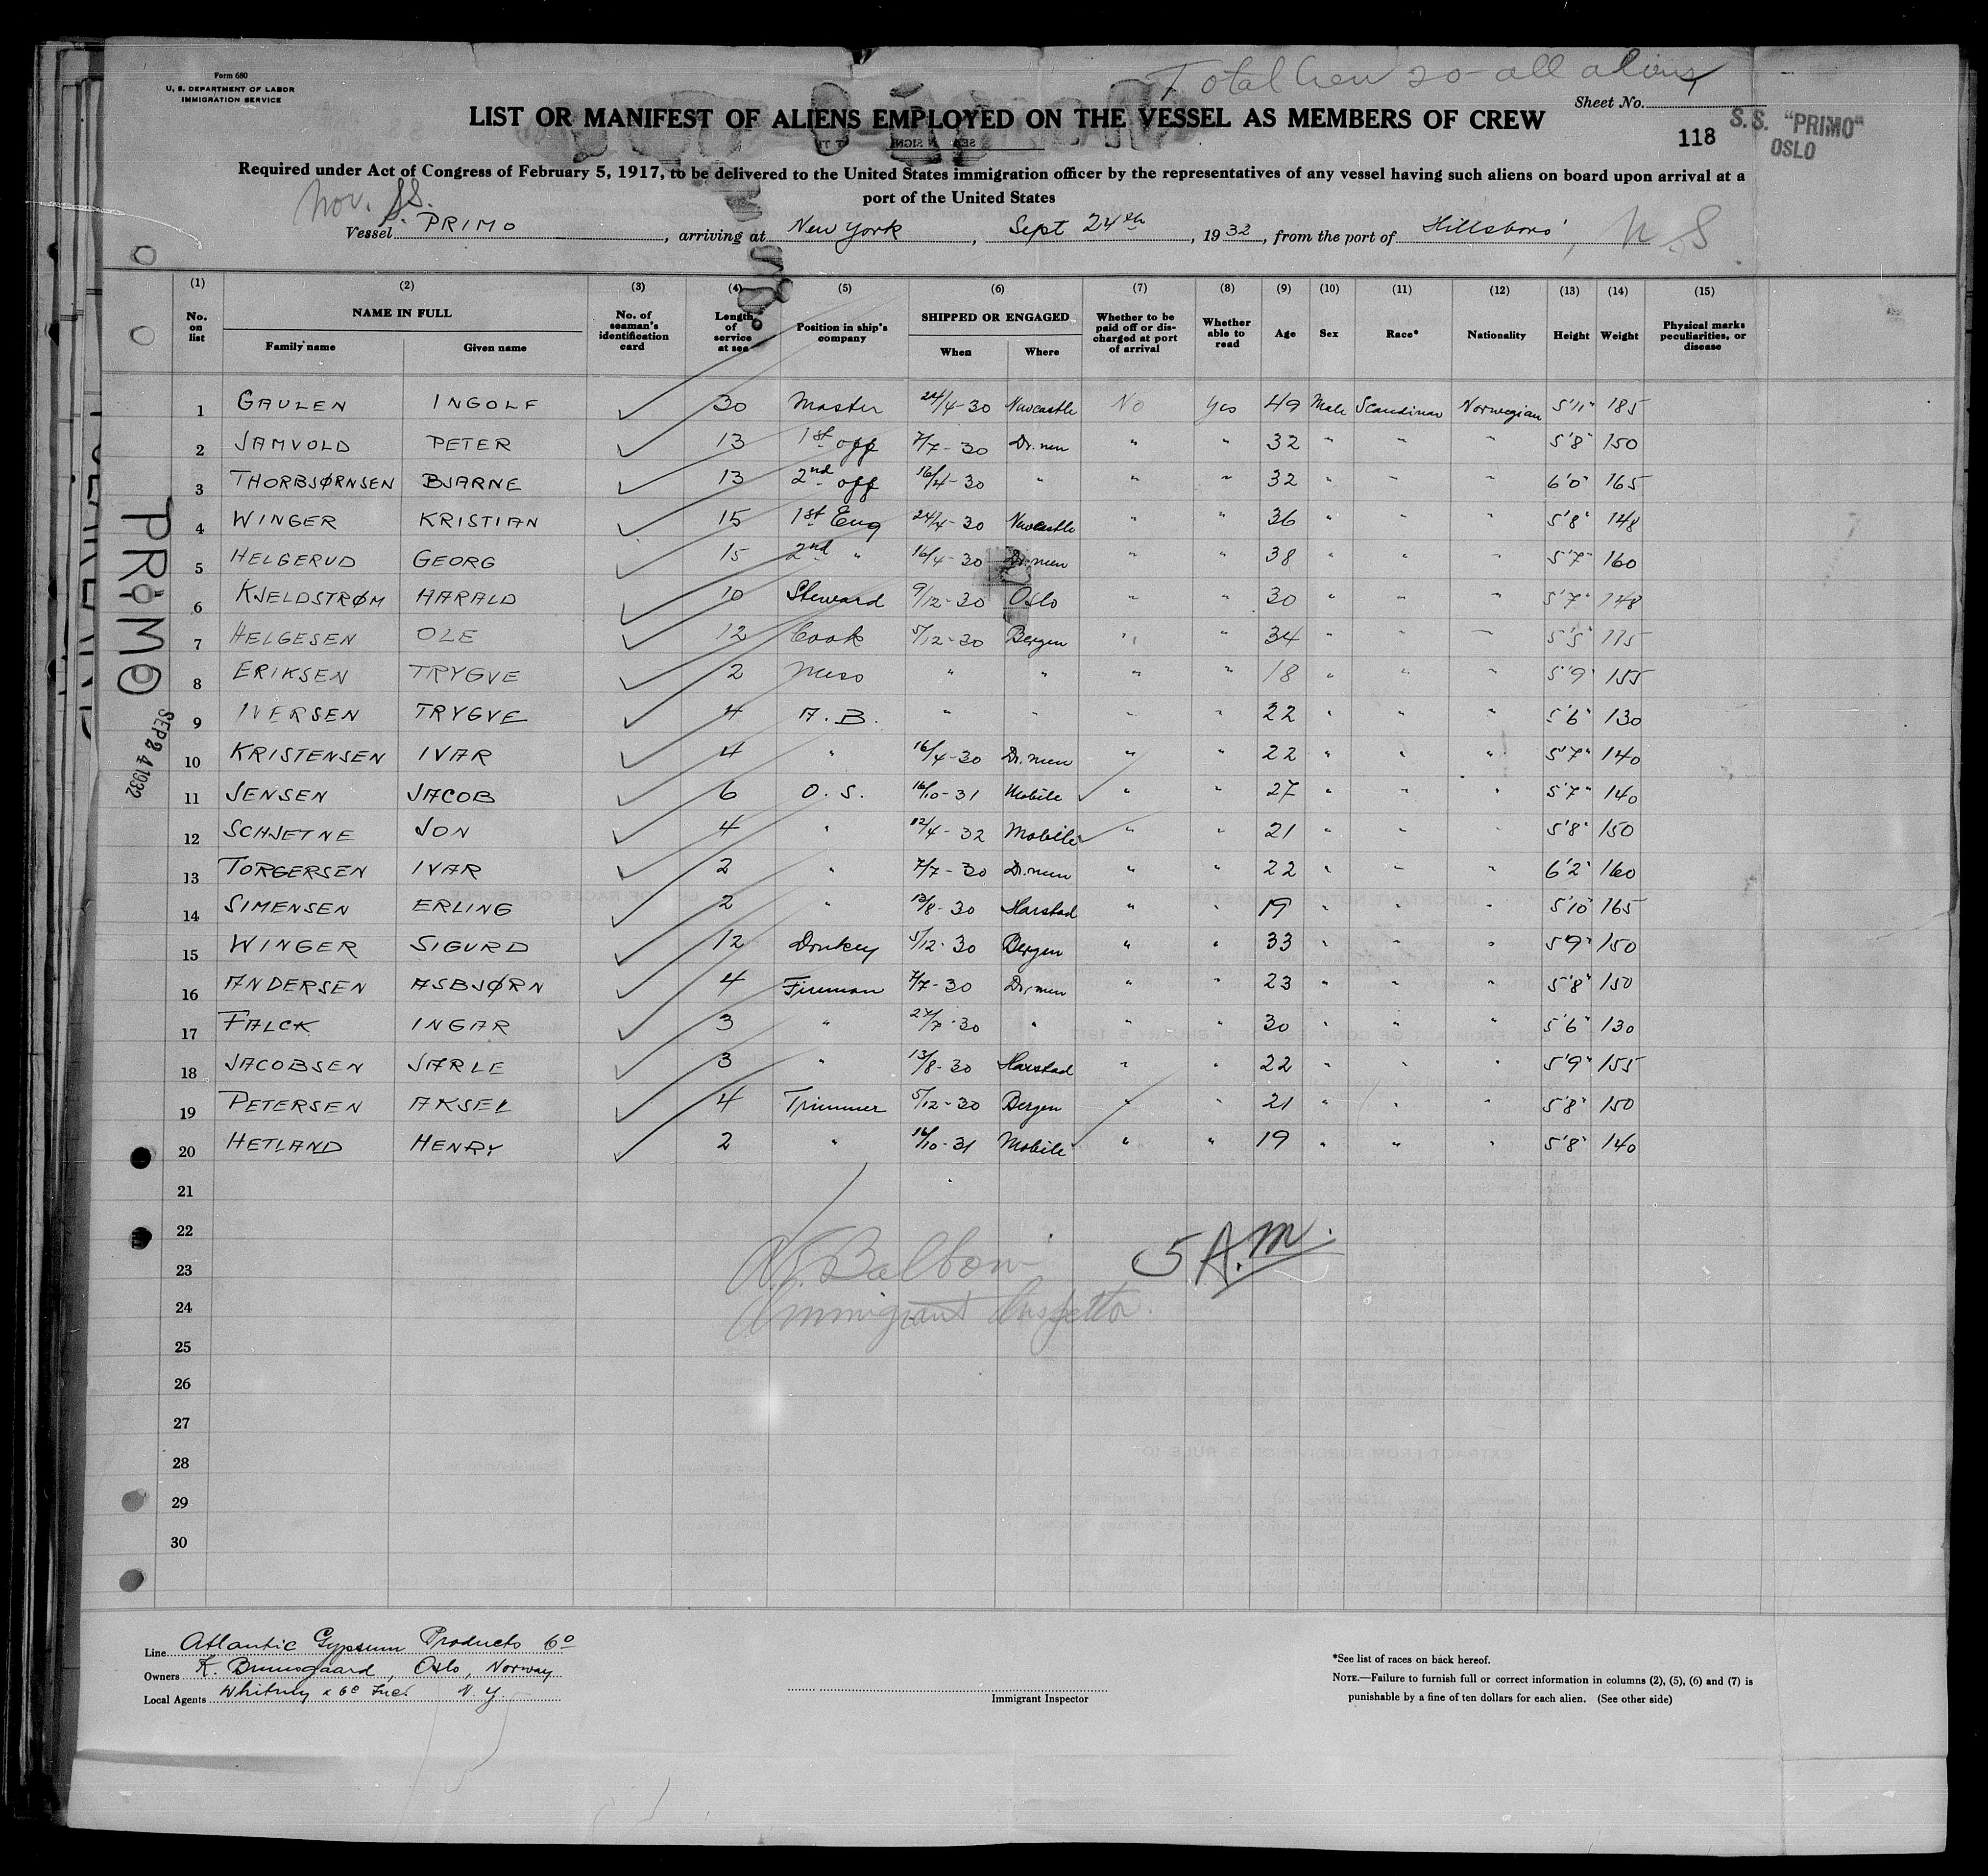 Form 680
U. S. DEPARTMENT OF LABOR
IMMIGRATION SERVICE
Total Crew 20 - all aliens
Sheet No.
LIST OR MANIFEST OF ALIENS EMPLOYED ON THE VESSEL AS MEMBERS OF CREW
118
S.S. "PRIMO"
OSLO
Required under Act of Congress of February 5, 1917, to be delivered to the United States immigration officer by the representatives of any vessel having such aliens on board upon arrival at a
port of the United States
Nor. SS.
Vessel S. PRIMO, arriving at New York, Sept 24th, 1932, from the port of Hillsboro, N.S
(1) (2) (3) (4) (5) (6) (7) (8) (9) (10) (11) (12) (13) (14) (15)
No. on list NAME IN FULL Family name Given name No. of seaman's identification card Length of service at sea Position in ship's company SHIPPED OR ENGAGED When Where Whether to be paid off or discharged at port of arrival Whether able to read Age Sex Race* Nationality Height Weight Physical marks peculiarities, or disease
1 GAULEN INGOLF ✓ 30 Master 24/4-30 Newcastle No Yes 49 Male Scandinav Norwegian 5'11" 185
2 JAMVOLD PETER ✓ 13 1st off 7/7-30 Dr.men " " 32 " " " 5'8" 150
3 THORBJØRNSEN BJARNE ✓ 13 2nd off 16/4-30 " " " 32 " " " 6'0" 165
4 WINGER KRISTIAN ✓ 15 1st Eng 24/4-30 Newcastle " " 36 " " " 5'8" 148
5 HELGERUD GEORG ✓ 15 2nd " 16/4-30 Dr.men " " 38 " " " 5'7" 160
6 KJELDSTRØM HARALD ✓ 10 Steward 9/12-30 Oslo " " 30 " " " 5'7" 148
7 HELGESEN OLE ✓ 12 Cook 5/12-30 Bergen " " 34 " " " 5'5"
8 ERIKSEN TRYGVE ✓ 2 Mess " " " " 18 " " " 5'9" 155
9 IVERSEN TRYGVE ✓ 4 A.B. " " " " 22 " " " 5'6" 130
10 KRISTENSEN IVAR ✓ 4 " 16/4-30 Dr.men " " 22 " " " 5'7" 140
11 JENSEN JACOB ✓ 6 O.S. 16/10-31 Mobile ✓ " " 27 " " " 5'7" 140
12 SCHJETNE JON ✓ 4 " 12/4-32 Mobile ✓ " " 21 " " " 5'8" 150
13 TORGERSEN IVAR ✓ 2 " 7/7-30 Dr.men " " 22 " " " 6'2" 160
14 SIMENSEN ERLING ✓ 2 " 13/8-30 Harstad " " 19 " " " 5'10" 165
15 WINGER SIGURD ✓ 12 Donkey 5/12-30 Bergen " " 33 " " " 5'9" 150
16 ANDERSEN ASBJØRN ✓ 4 Fireman 7/7-30 Dr.men " " 23 " " " 5'8" 150
17 FALCK INGAR ✓ 3 " 27/7-30 " " " 30 " " " 5'6" 130
18 JACOBSEN JARLE ✓ 3 " 13/8-30 Harstad " " 22 " " " 5'9" 155
19 PETERSEN AKSEL ✓ 4 Trimmer 5/12-30 Bergen " " 21 " " " 5'8" 150
20 HETLAND HENRY ✓ 2 " 16/10-31 Mobile ✓ " " 19 " " " 5'8" 140
21
22
23
24
25
26
27
28
29
30
PRIMO
SEP 24 1932
5 A.M.
Immigrant Inspector
Line Atlantic Gypsum Products Co
Owners K. Bruusgaard, Oslo, Norway
Local Agents Whitney & Co Inc. N.Y.
Immigrant Inspector
*See list of races on back hereof.
NOTE.—Failure to furnish full or correct information in columns (2), (5), (6) and (7) is
punishable by a fine of ten dollars for each alien. (See other side)